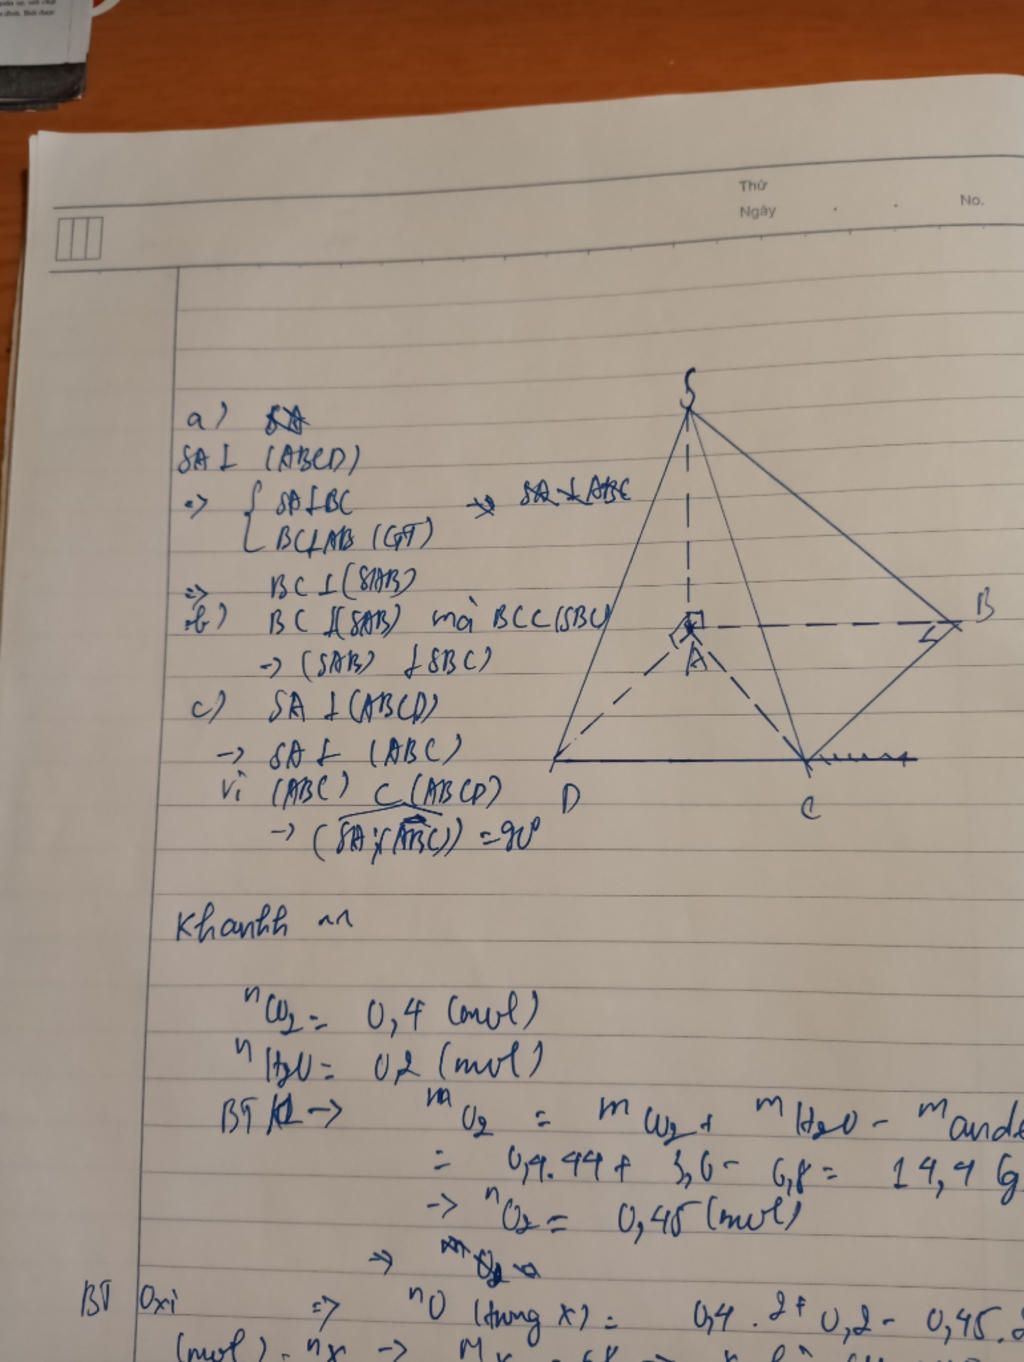 Thứ
Ngày
No.
S
a)
SA ⊥ (ABCD)
=> { SA ⊥ BC
BC ⊥ AB (GT)
=> BC ⊥ (SAB)
b) BC ⊥ (SAB) mà BC ⊂ (SBC)
-> (SAB) ⊥ SBC)
c) SA ⊥ (ABCD)
-> SA ⊥ (ABC)
Vì (ABC) ⊂ (ABCD)
-> (SA; (ABC)) = 90°
B
A
D
C
Khanhh
nCO2 = 0,4 (mol)
nH2O = 0,2 (mol)
BT -> mO2 = mCO2 + mH2O - mande
= 0,4.44 + 3,6 - 6,8 = 14,4 (g
-> nO2 = 0,45 (mol)
BT Oxi => nO (trong x) = 0,4 . 2 + 0,2 - 0,45.2
(mol) = nx -> Mx